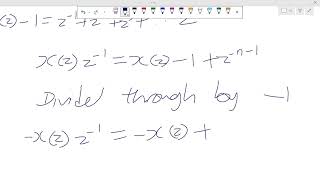 (z)-1=z⁻¹+z⁻²+z⁻³+ ... z
x(z)z⁻¹=x(z)-1+z⁻ⁿ⁻¹
Divide through by -1
-x(z)z⁻¹=-x(z)+